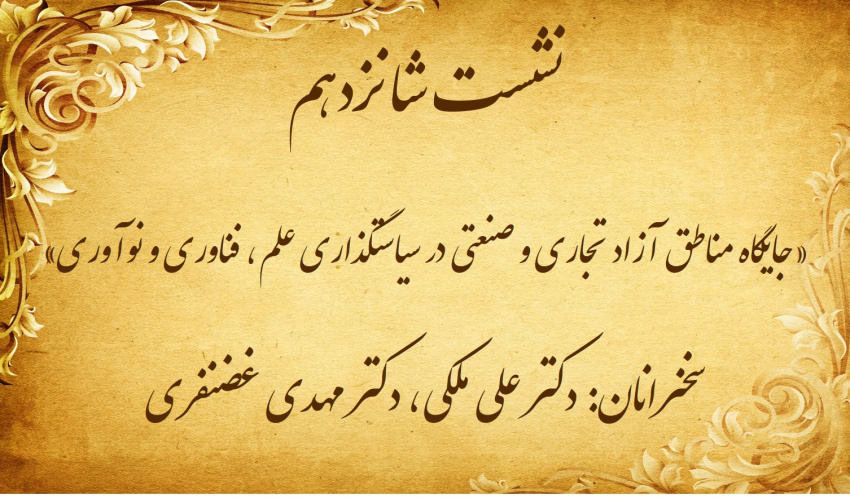 نشست شانزدهم
«جایگاه مناطق آزاد تجاری و صنعتی در سیاستگذاری علم، فناوری و نوآوری»
سخنرانان: دکتر علی ملکی، دکتر مهدی غضنفری